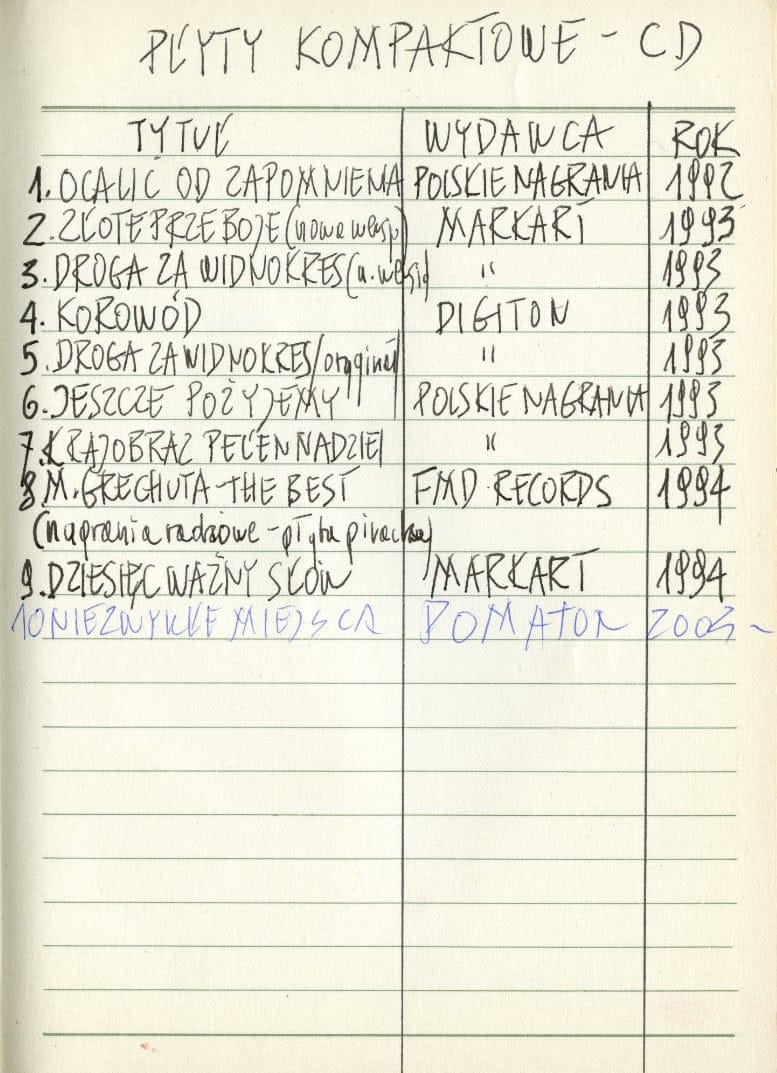 PŁYTY KOMPAKTOWE - CD
TYTUŁ WYDAWCA ROK
1. OCALIĆ OD ZAPOMNIENIA POLSKIE NAGRANIA 1992
2. ZŁOTE PRZEBOJE (nowe wersje) MARKART 1993
3. DROGA ZA WIDNOKRES (n. wersja) " 1993
4. KOROWÓD DIGITON 1993
5. DROGA ZA WIDNOKRES (oryginał) " 1993
6. JESZCZE POŻYJEMY POLSKIE NAGRANIA 1993
7. KRAJOBRAZ PEŁEN NADZIEI " 1993
8 M. GRECHUTA - THE BEST FMD - RECORDS 1994
(nagrania radiowe - płyta piracka)
9. DZIESIĘĆ WAŻNY SŁÓW MARKART 1994
10 NIEZWYKŁE MIEJSCA POMATON 2003 -